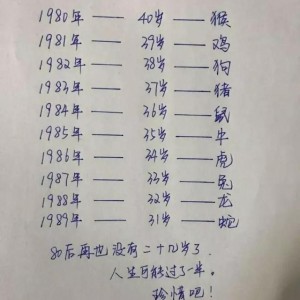 1980年 —— 40岁 —— 猴
1981年 —— 39岁 —— 鸡
1982年 —— 38岁 —— 狗
1983年 —— 37岁 —— 猪
1984年 —— 36岁 —— 鼠
1985年 —— 35岁 —— 牛
1986年 —— 34岁 —— 虎
1987年 —— 33岁 —— 兔
1988年 —— 32岁 —— 龙
1989年 —— 31岁 —— 蛇
80后再也没有二十几岁了.
人生可能过了一半。
珍惜吧!